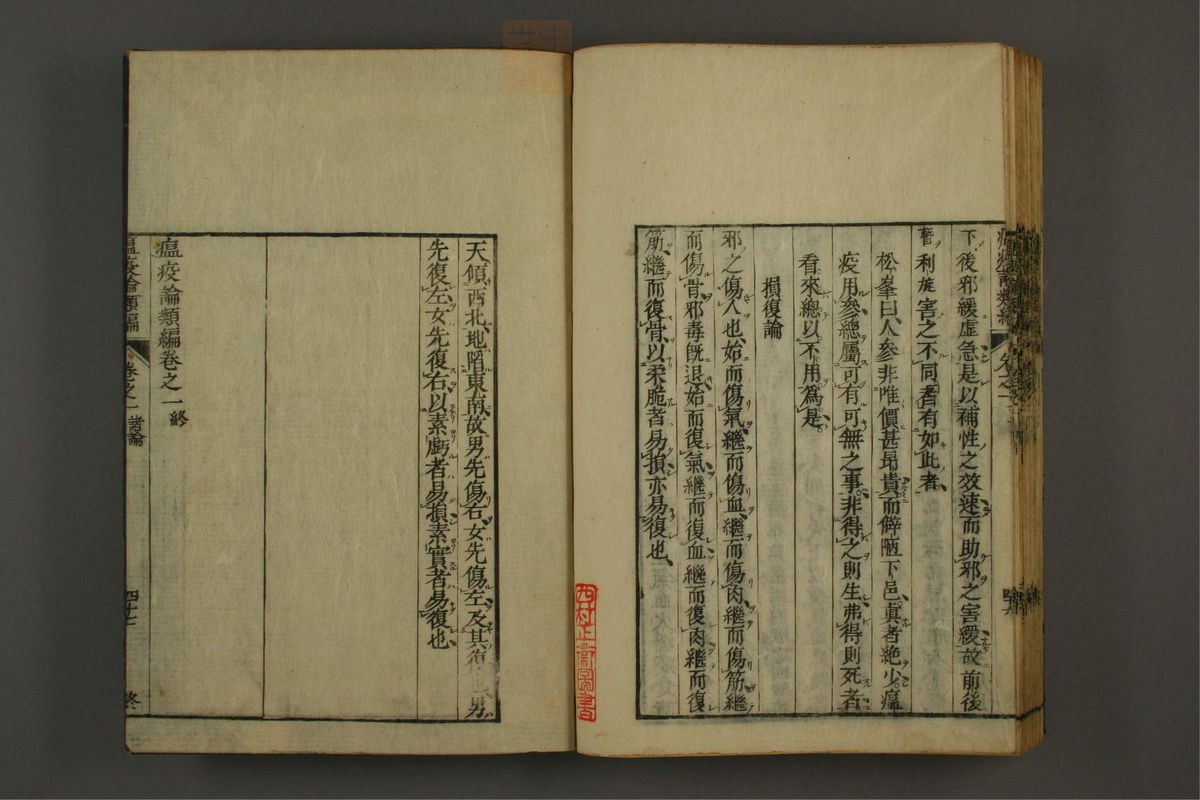 下後邪緩虛急是以補性之效速而助邪之害緩故前後
暫利旋害之不同者有如此者
松峯曰人參非唯價甚昂貴而僻陋下邑眞者絶少瘟
疫用參總屬可有可無之事非得之則生弗得則死者
看來總以不用爲是
損復論
邪之傷人也始而傷氣繼而傷血繼而傷肉繼而傷筋繼
而傷骨邪毒旣退始而復氣繼而復血繼而復肉繼而復
筋繼而復骨以柔脆者易損亦易復也
天傾西北地陷東南故男先傷右女先傷左及其復男
先復左女先復右以素虧者易損素實者易復也
瘟疫論類編卷之一終
瘟疫論類編 卷之一 諸論 四十七 終